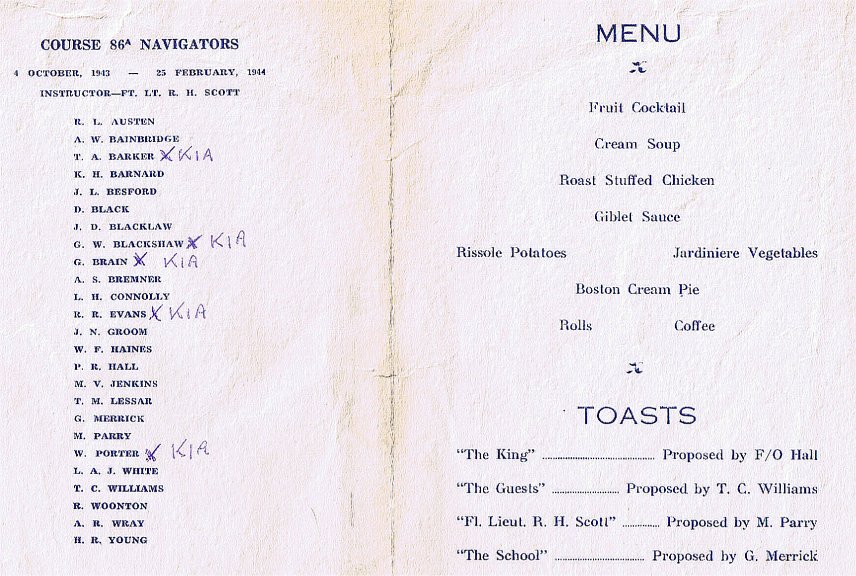 COURSE 86A NAVIGATORS
4 OCTOBER, 1943 — 25 FEBRUARY, 1944
INSTRUCTOR—FT. LT. R. H. SCOTT
R. L. AUSTEN
A. W. BAINBRIDGE
T. A. BARKER X KIA
K. H. BARNARD
J. L. BESFORD
D. BLACK
J. D. BLACKLAW
G. W. BLACKSHAW X KIA
G. BRAIN X KIA
A. S. BREMNER
L. H. CONNOLLY
R. R. EVANS X KIA
J. N. GROOM
W. F. HAINES
P. R. HALL
M. V. JENKINS
T. M. LESSAR
G. MERRICK
M. PARRY
W. PORTER X KIA
L. A. J. WHITE
T. C. WILLIAMS
R. WOONTON
A. R. WRAY
H. R. YOUNG
MENU
Fruit Cocktail
Cream Soup
Roast Stuffed Chicken
Giblet Sauce
Rissole Potatoes Jardiniere Vegetables
Boston Cream Pie
Rolls Coffee
TOASTS
"The King" ........................ Proposed by F/O Hall
"The Guests" ................ Proposed by T. C. Williams
"Fl. Lieut. R. H. Scott" ......... Proposed by M. Parry
"The School" ........................ Proposed by G. Merrick